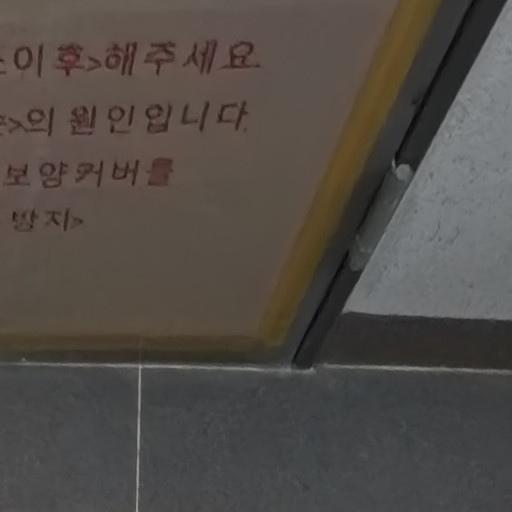 이후>해주세요
>의 원인입니다.
보양커버를
방지>